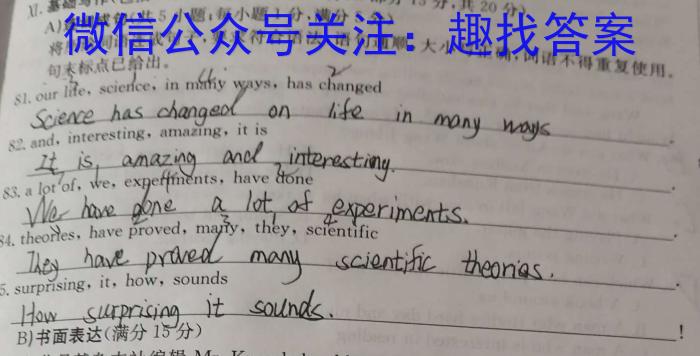 XI. 基础写作
A) 5 小题,每小题1分,满分 15分,共20分)
微信公众号关注：趣找答案
大小 词语不得重复使用。
句末标点已给出。
81. our life, science, in many ways, has changed
Science has changed on life in many ways.
82. and, interesting, amazing, it is
It is amazing and interesting.
83. a lot of, we, experiments, have done
We have done a lot of experiments.
84. theories, have proved, many, they, scientific
They have proved many scientific theories.
5. surprising, it, how, sounds
How surprising it sounds. !
B)书面表达(满分15分)